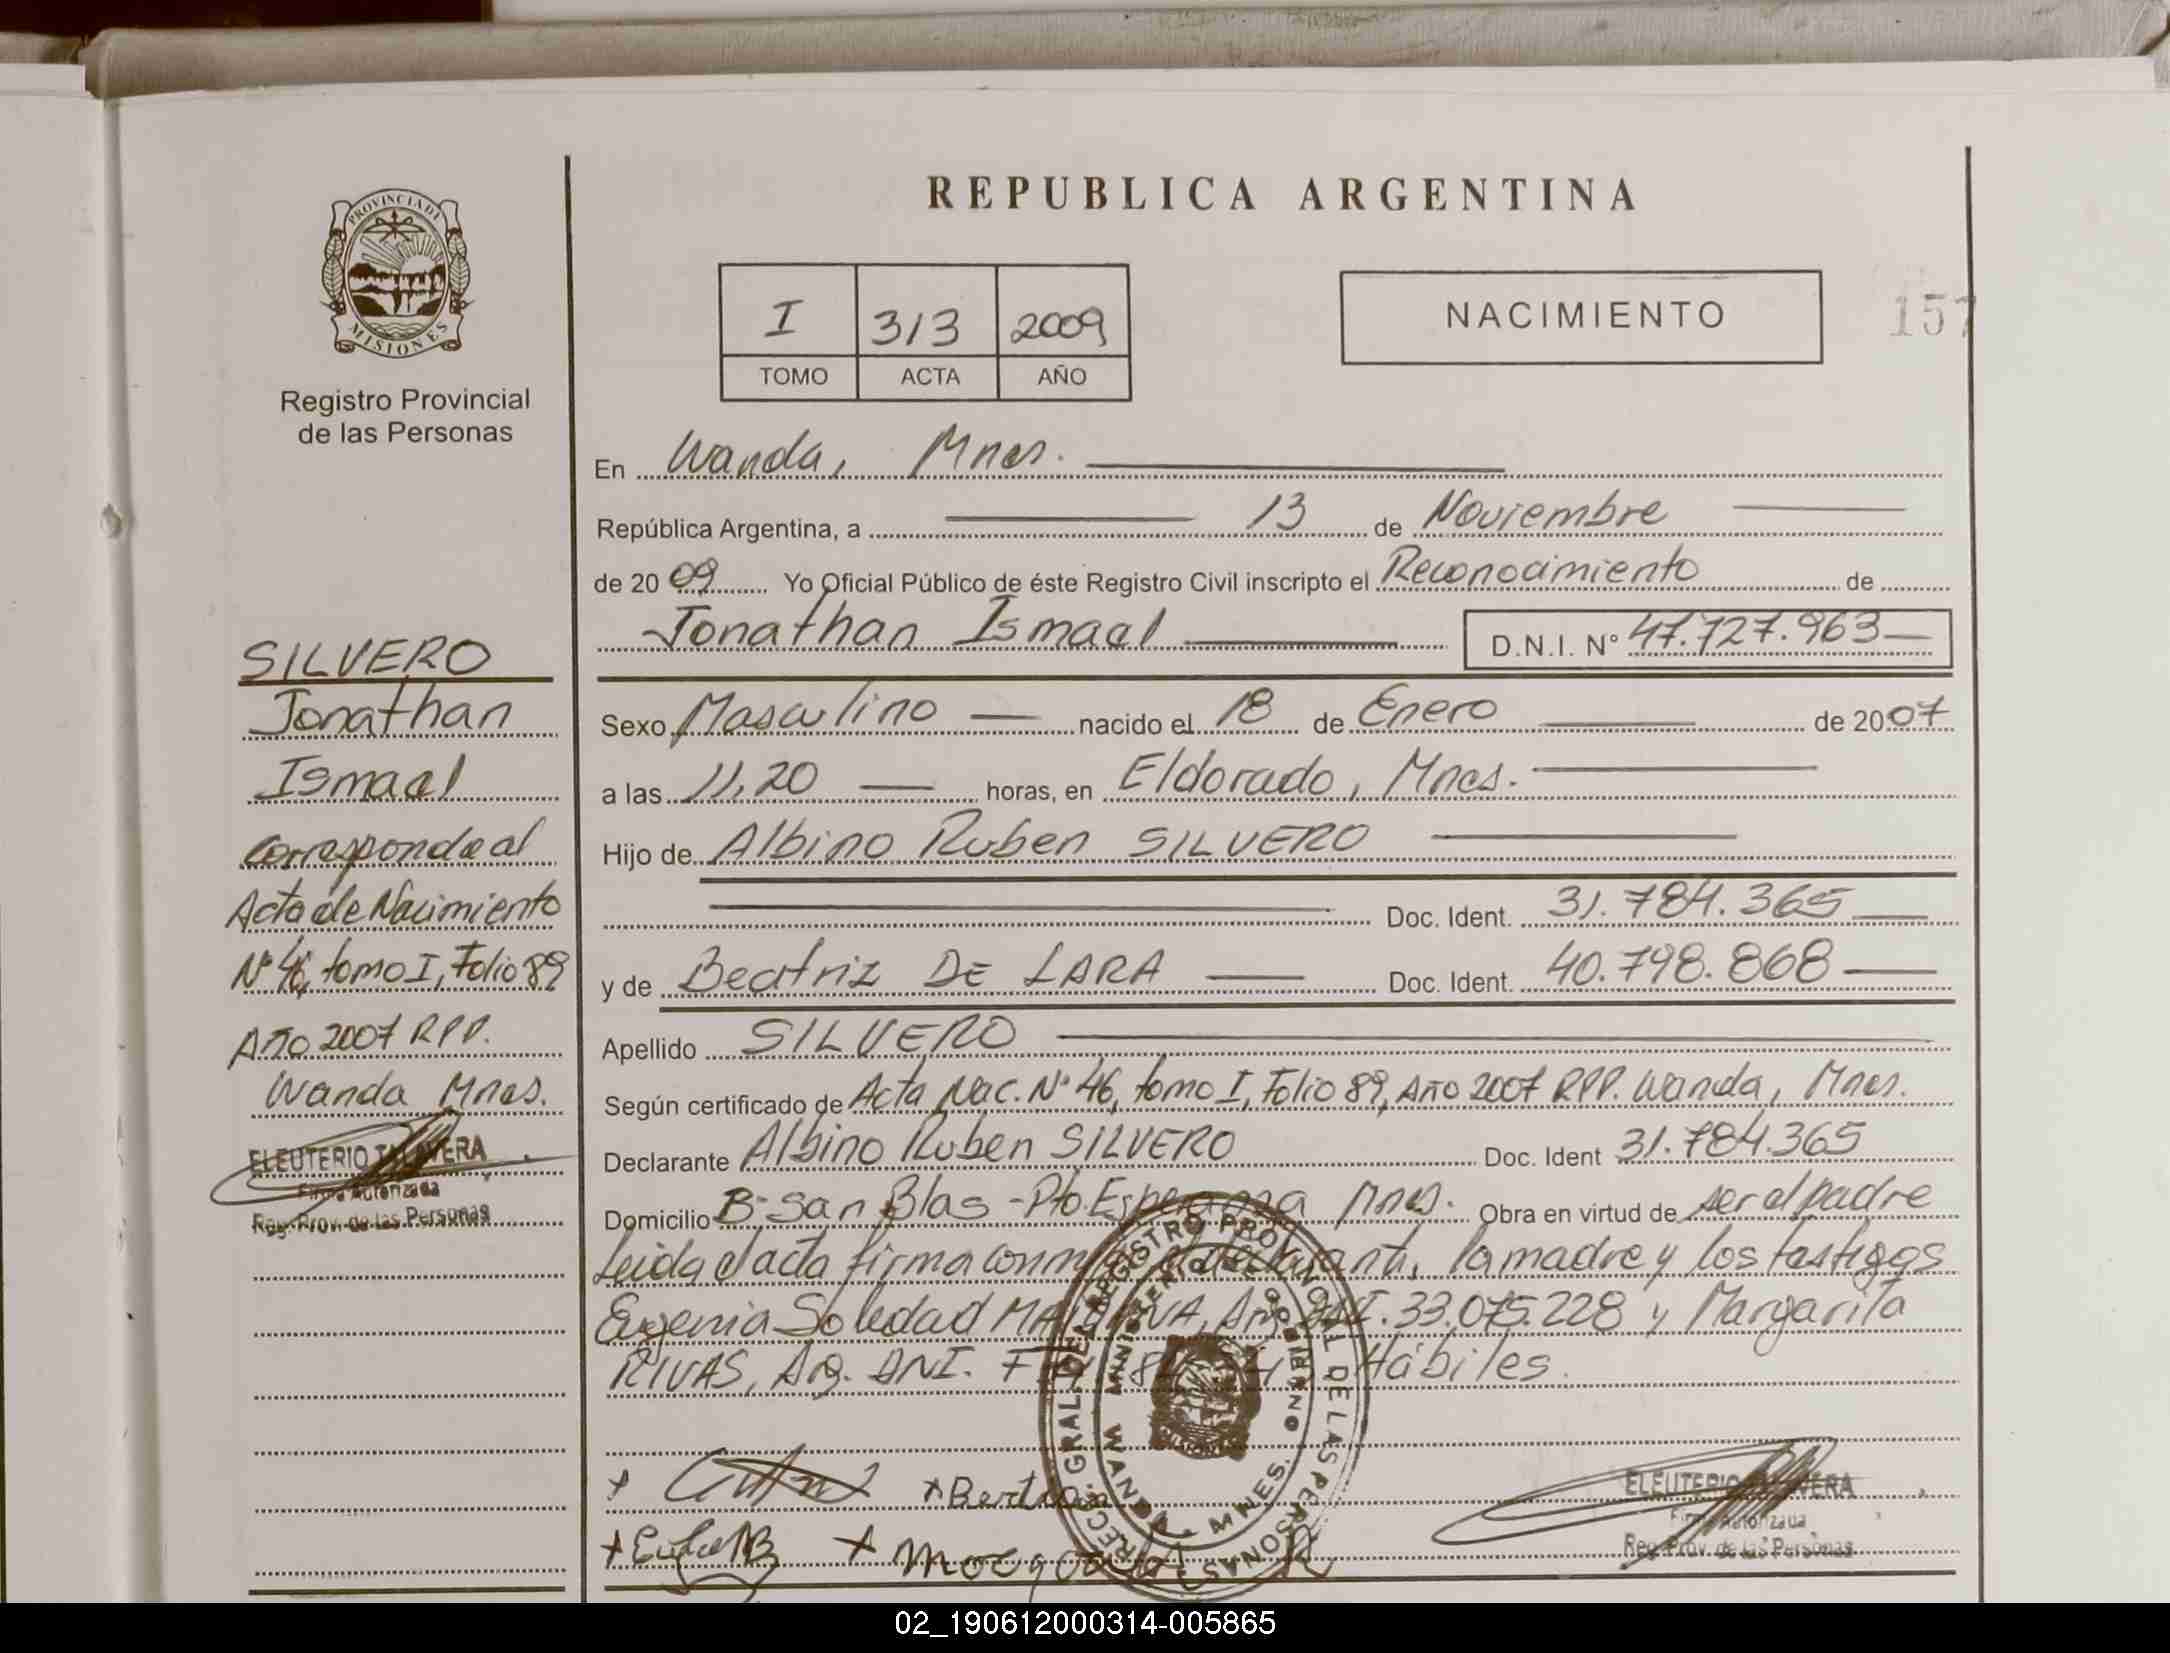 REPUBLICA ARGENTINA
PROVINCIA DE
MISIONES
Registro Provincial
de las Personas
I 313 2009
TOMO ACTA AÑO
NACIMIENTO
157
En Wanda, Mnes.
República Argentina, a 13 de Noviembre
de 2009 Yo Oficial Público de éste Registro Civil inscripto el Reconocimiento de
Jonathan Ismael D.N.I. N° 47.727.963
Sexo Masculino nacido el 18 de Enero de 2007
a las 11,20 horas, en Eldorado, Mnes.
Hijo de Albino Ruben SILVERO
Doc. Ident. 31.784.365
y de Beatriz DE LARA Doc. Ident. 40.798.868
Apellido SILVERO
Según certificado de Acta Nac. N° 46, tomo I, Folio 89, Año 2007 RPP. Wanda, Mnes.
Declarante Albino Ruben SILVERO Doc. Ident 31.784.365
Domicilio B° San Blas - Pto. Esperanza Mnes. Obra en virtud de ser el padre
Leida el acta firma conmigo el declarante, la madre y los testigos
Eugenia Soledad Arg. DNI. 33.075.228 y Margarita
RIVAS, Arg. DNI. Hábiles.
SILVERO
Jonathan
Ismael
Corresponde al
Acta de Nacimiento
N° 46, tomo I, Folio 89
Año 2007 RPP.
Wanda Mnes.
ELEUTERIO TALAVERA
Firma Autorizada
Reg. Prov. de las Personas
REGISTRO PROVINCIAL DE LAS PERSONAS
MINISTERIO DE GOBIERNO
WANDA MNES.
ELEUTERIO TALAVERA
Firma Autorizada
Reg. Prov. de las Personas
02_190612000314-005865